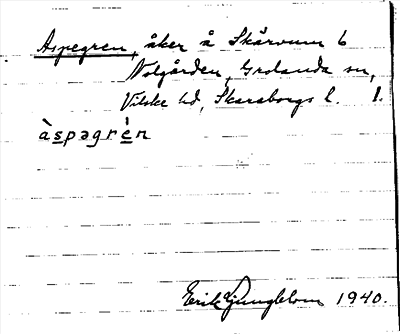 Aspegren, åker å Skårvum 6
Nolgården, Grolanda sn,
Vilske hd, Skaraborgs l. 1.
àspəgrèn
Erik Ljungblom 1940.